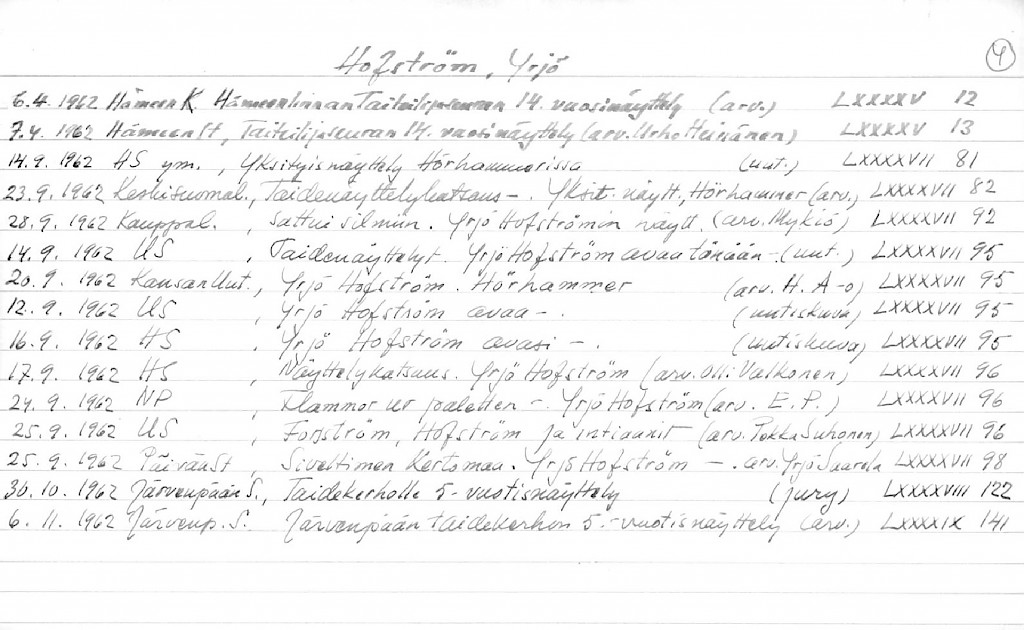 Hofström, Yrjö 4
6.4. 1962 Hämeen K. Hämeenlinnan Taiteilijaseuran 14. vuosinäyttely (arv.) LXXXXV 12
7.4. 1962 Hämeen St, Taiteilijaseuran 14. vuosinäyttely (arv. Urho Heinänen) LXXXXV 13
14.9. 1962 HS ym., Yksityisnäyttely Hörhammerissa (uut.) LXXXXVII 81
23.9. 1962 Keskisuomal., Taidenäyttelykatsaus -. Yksit. näytt., Hörhammer (arv.) LXXXXVII 82
28.9. 1962 Kauppal., Sattui silmiin. Yrjö Hofströmin näytt. (arv. Mykiö) LXXXXVII 92
14.9. 1962 US, Taidenäyttelyt. Yrjö Hofström avaa tänään - (uut.) LXXXXVII 95
20.9. 1962 Kansan Uut., Yrjö Hofström. Hörhammer (arv. H. A-o) LXXXXVII 95
12.9. 1962 US, Yrjö Hofström avaa -. (uutiskuva) LXXXXVII 95
16.9. 1962 HS, Yrjö Hofström avasi -. (uutiskuva) LXXXXVII 95
17.9. 1962 HS, Näyttelykatsaus. Yrjö Hofström (arv. Olli Valkonen) LXXXXVII 96
24.9. 1962 NP, Flammor ur paletten -. Yrjö Hofström (arv. E. P.) LXXXXVII 96
25.9. 1962 US, Forsström, Hofström ja intiaanit (arv. Pekka Suhonen) LXXXXVII 96
25.9. 1962 Päivän St, Siveltimen kertomaa. Yrjö Hofström -. arv. Yrjö Saarela LXXXXVII 98
30.10. 1962 Järvenpään S., Taidekerholle 5-vuotisnäyttely (jury) LXXXXVIII 122
6.11. 1962 Järvenp. S. Järvenpään taidekerhon 5.-vuotisnäyttely (arv.) LXXXXIX 141